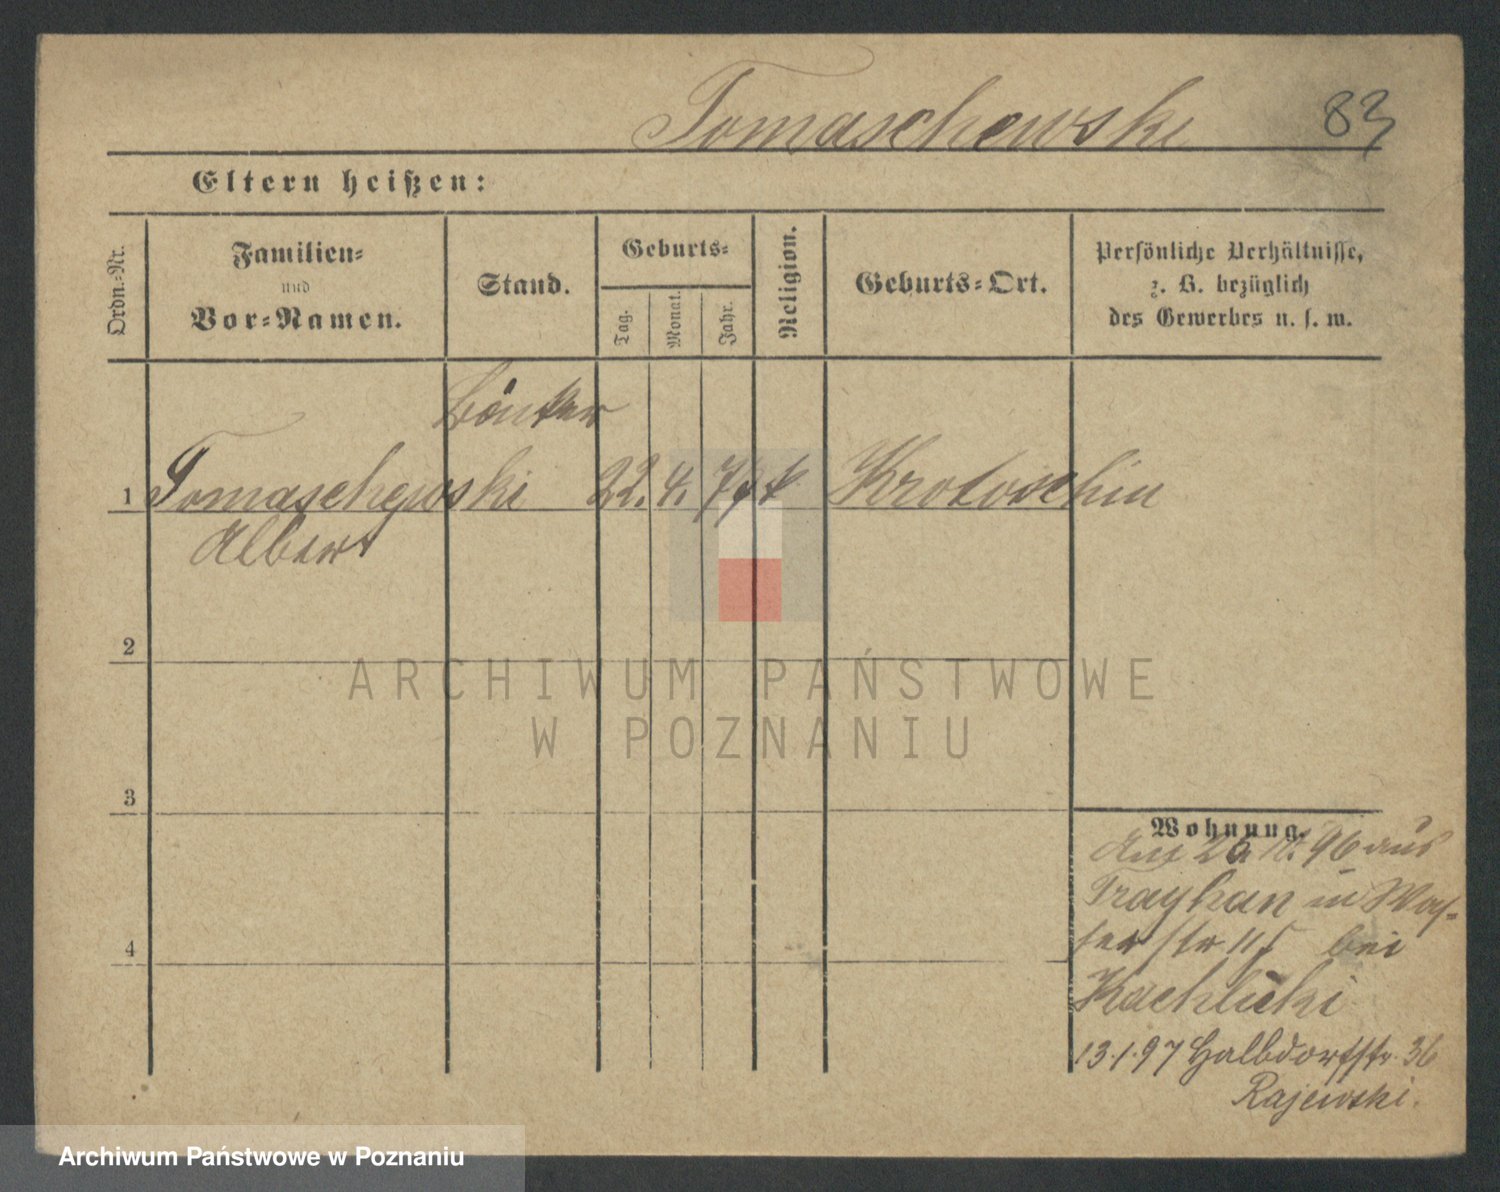 Tomaschewski 83
Eltern heißen:
Ordn.-Nr.
Familien-
und
Vor-Namen.
Stand.
Geburts-
Tag.
Monat.
Jahr.
Religion.
Geburts-Ort.
Persönliche Verhältnisse,
z. B. bezüglich
des Gewerbes u. s. w.
1 Tomaschewski 22. 4. 77 k Krotoschin
Albert
2
3
4
ARCHIWUM PAŃSTWOWE
W POZNANIU
Wohnung.
96 aus
in Was-
ser str 115 bei
Kachlicki
13.1.97 Halbdorfstr. 36
Rajewski.
Archiwum Państwowe w Poznaniu